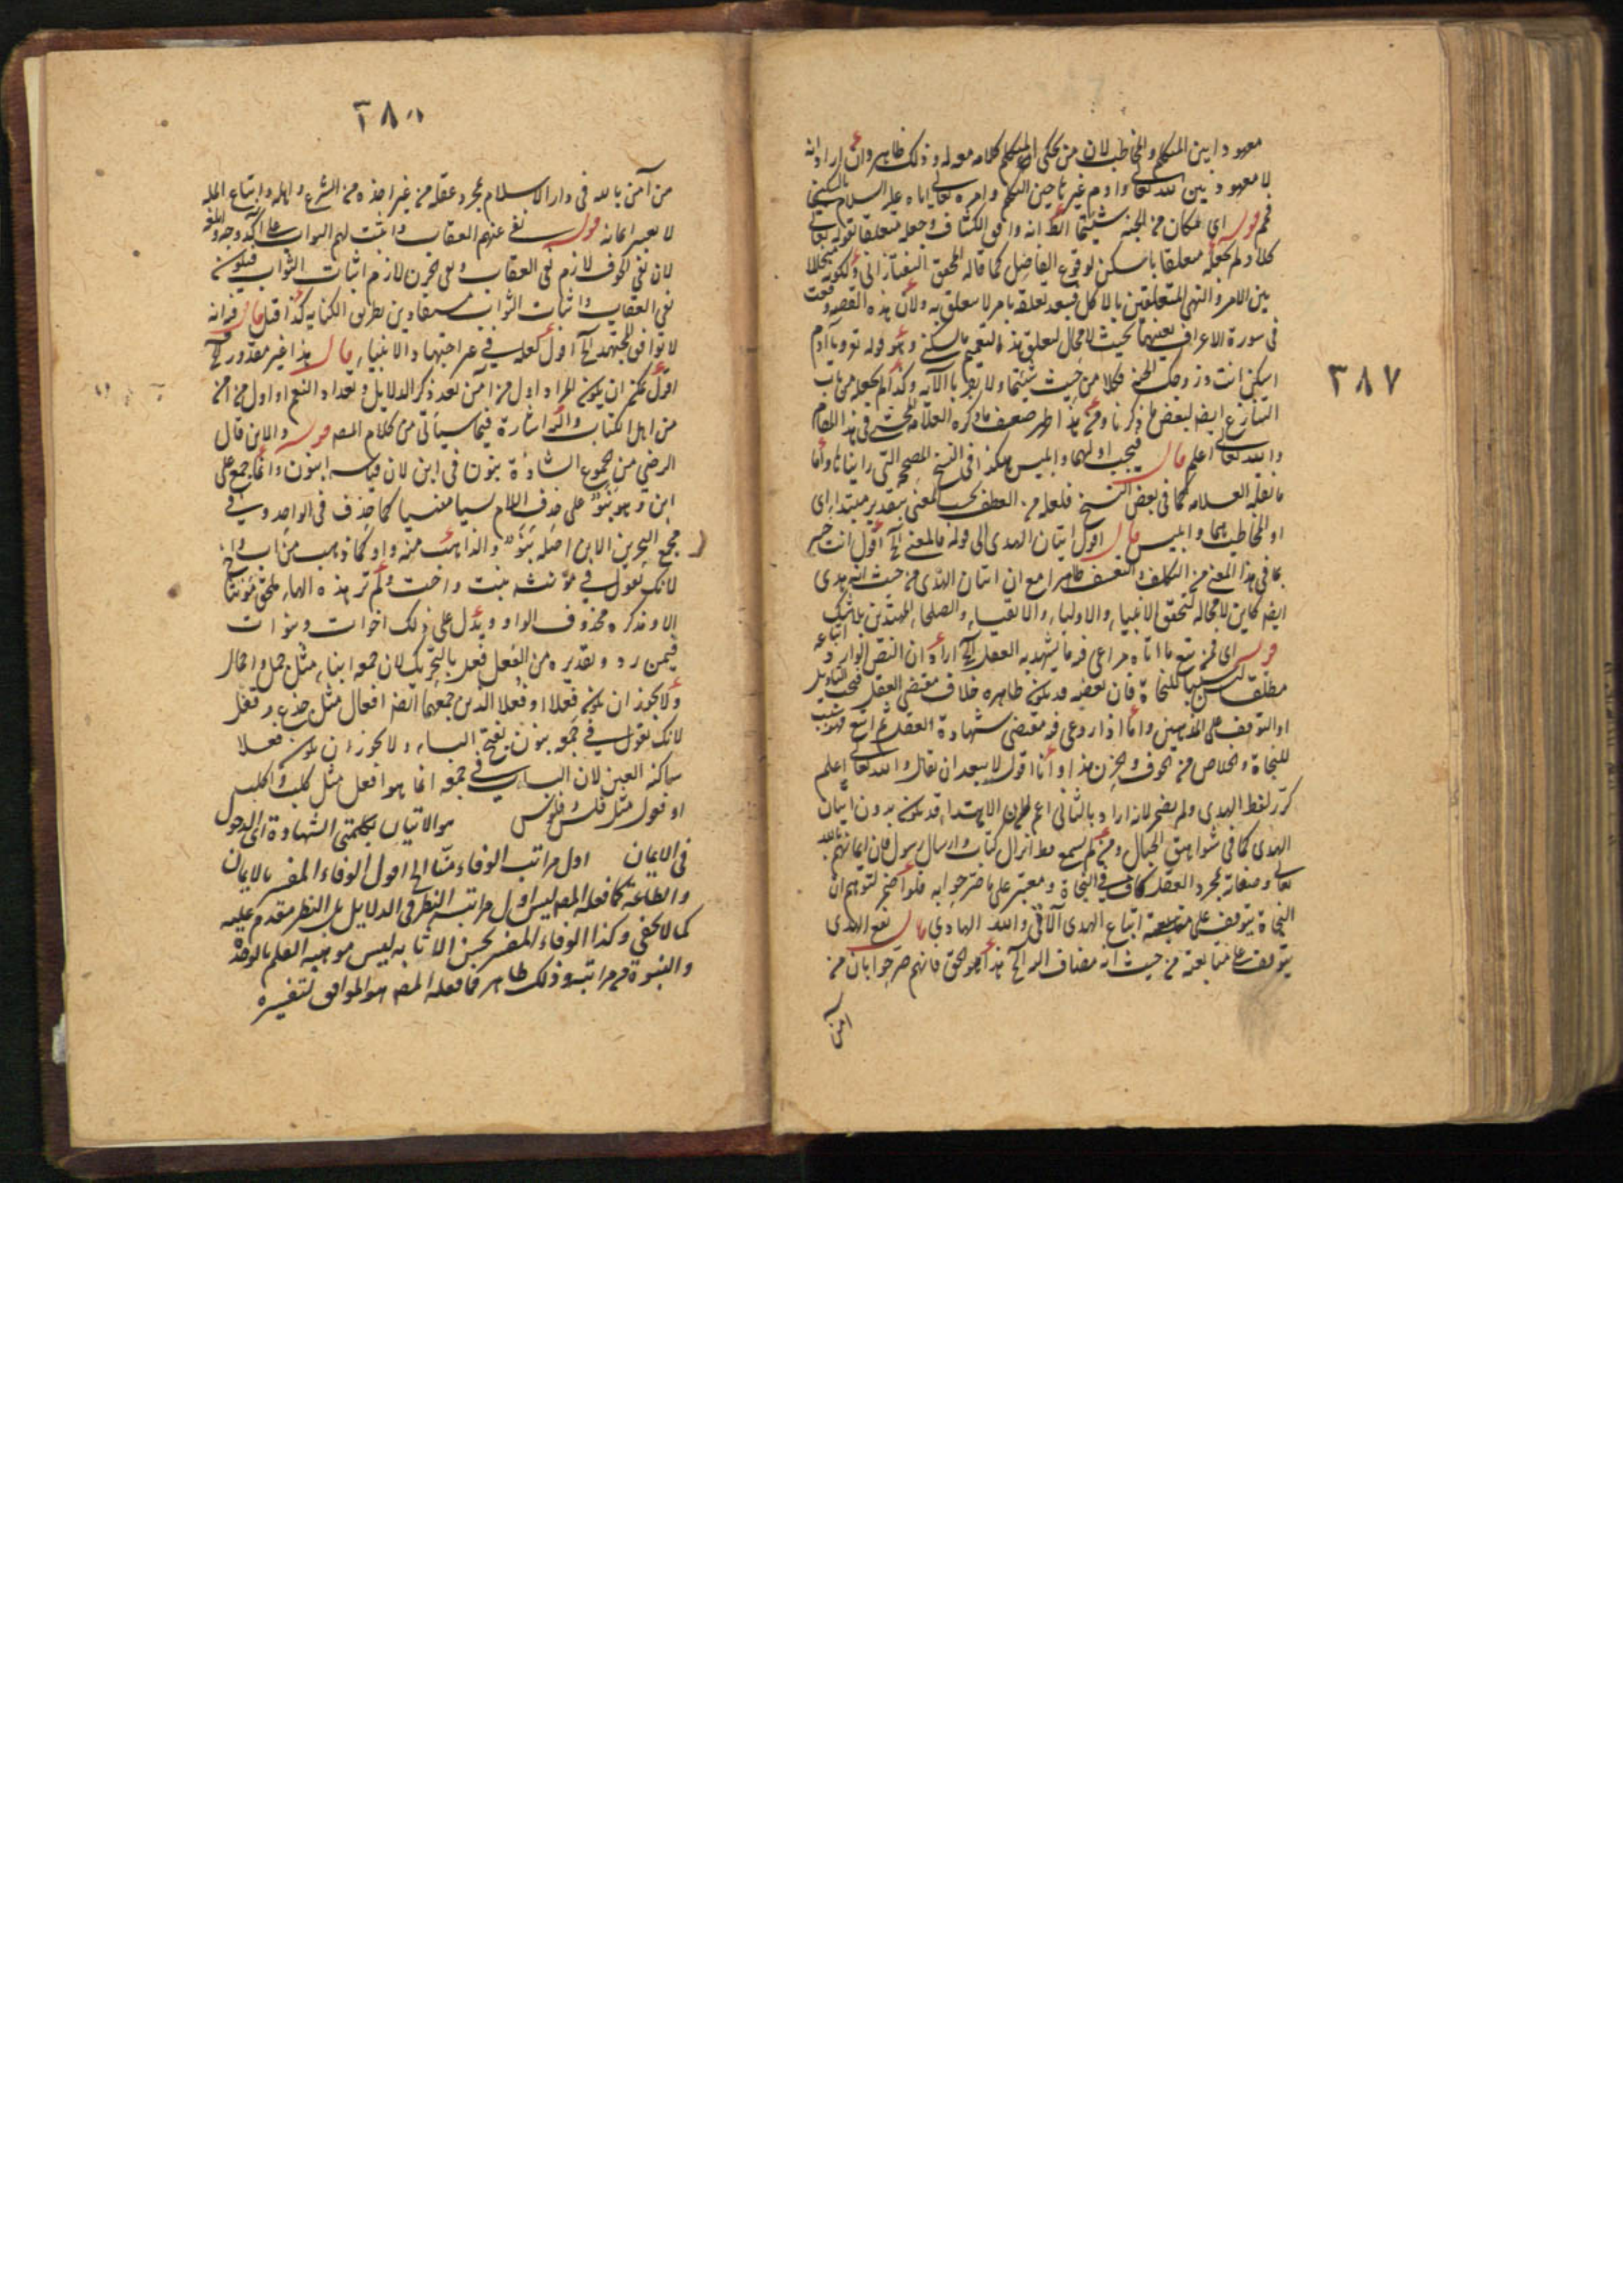 ٣٨٧
معهودا بين المتكلم والمخاطب لان من يحكى المتكلم كلامه معه له وذلك ظاهر وان اراد انه
لا معهود بين الله تعالى وادم غير حين التكلم وامره تعالى اياه عليه السلام بالسكنى
فمم قوله اى مكان من الجنة شئتما انه وافق الكشاف وجعله متعلقا بقوله تعالى
كلا ولم يجعله متعلقا باسكن لوقوع الفاصل كما قاله المحقق التفتازانى ولكونه متخللا
بين الامر والنهى المتعلقين بالاكل فيبعد تعلقه بامر لا تعلق به ولان هذه القصة وقعت
فى سورة الاعراف بعينها بحيث لا مجال لتعلق هذه التعميم بالسكنى وهو قوله تع ويا آدم
اسكن انت وزوجك الجنة فكلا من حيث شئتما ولا تقربا الآية وكذا لم يجعله من باب
التنازع ايضا لبعض ما ذكرنا ومن هذا ظهر ضعف ما ذكره العلامة المحشى فى هذا المقام
والله تعالى اعلم قال فيجب اولهما وابليس هكذا فى النسخ المصححة التى رايناها واما
ما نقله العلامة كما فى بعض النسخ فلعله من العطف بحسب المعنى بتقدير مبتدا اى
او المخاطب هما وابليس قال اقول اتيان الهدى الى قوله فالمعنى الخ اقول انت خبير
بما فى هذا المعنى من التكلف والتعسف ظاهرا مع ان اتيان الهدى من حيث انه هدى
ايضا كاين لا محالة لتحقق الانبياء والاولياء والاتقياء والصلحاء المهتدين بلا شك
قوله اى فمن تبع ما اتاه مراعى فيه ما يشهد به العقل الخ اراد ان النص الوارد اتباعه
مطلقا ليس سببا للنجاة فان بعضه قد يكون ظاهره خلاف مقتضى العقل فيجب التاويل
او التوقف على المذهبين واما اذا روعى فيه مقتضى شهادة العقل ثم اتبع فهو سبب
للنجاة والخلاص من الخوف والحزن هذا وانا اقول لا يبعد ان يقال والله تعالى اعلم
كرر لفظ الهدى ولم يضمر لانه اراد بالثانى اعم فان الاهتداء قد يكون بدون اتيان
الهدى كما فى شواهق الجبال ومن لم يسمع قط انزال كتاب وارسال رسول فان ايمانهم بالله
تعالى وصفاته بمجرد العقل كاف فى النجاة ومعتبر على ما صرحوا به فلو اضمر لتوهم ان
النجاة يتوقف على متابعة اتباع الهدى الآتى والله الهادى قال تبع الهدى
يتوقف على متابعته من حيث انه مضاف اليه الخ هذا هو الحق فانهم صرحوا بان من
آمن
من آمن بالله فى دار الاسلام بمجرد عقله من غير اخذه من الشرع واهله واتباع المله
لا يعتبر ايمانه قوله نفى عنهم العقاب واثبت لهم الثواب على آكد وجه وابلغه
لان نفى الخوف لازم نفى العقاب ونفى الحزن لازم اثبات الثواب فيكون
نفى العقاب واثبات الثواب مستفادين بطريق الكناية كذا قيل قال فيه انه
لا توافق المجتهد الخ اقول لعله فى غير اجتهاد الانبياء قال هذا غير مقدور الخ
اقول يمكن ان يكون المراد اول من آمن بعد ذكر الدلايل وتعداد النعم او اول من آمن
من اهل الكتاب واليه اشارة فيما سيأتى من كلام المصه قوله والابن قال
الرضى من الجموع الشاذة بنون فى ابن لان قياسه ابنون وانما جمع على
ابن وهو بنو على حذف اللام نسيا منسيا كما حذف فى الواحد وفى
مجمع البحرين الابن اصله بنو والذاهب منه واو كما ذهب من اب واخ
لانك تقول فى مؤنثه بنت واخت ولم تر هذه الهاء تلحق مؤنثا
الا ومذكره محذوف الواو ويدل على ذلك اخوات وبنوات
فيمن رد وتقديره من الفعل فعل بالتحريك لان جمعه ابناء مثل جمل واجمال
ولا يجوز ان يكون فعلا او فعلا الذين جمعهما ايضا افعال مثل جذع وقفل
لانك تقول فى جمعه بنون بفتح الباء ولا يجوز ان يكون فعلا
ساكنة العين لان الباب فى جمعه انما هو افعل مثل كلب واكلب
او فعول مثل فلس وفلوس هو الاتيان بكلمتى الشهادة اى الدخول
فى الايمان اول مراتب الوفاء منا الخ اقول الوفاء المفسر بالايمان
والطاعة كما فعله المصه ليس اول مراتبه النظر فى الدلايل بل النظر مقدم عليه
كما لا يخفى وكذا الوفاء المفسر بحسن الاثابه ليس موهبة العلم بالوحدة
والنبوة من مراتبه وذلك ظاهر فما فعله المصه هو الموافق لتفسيره